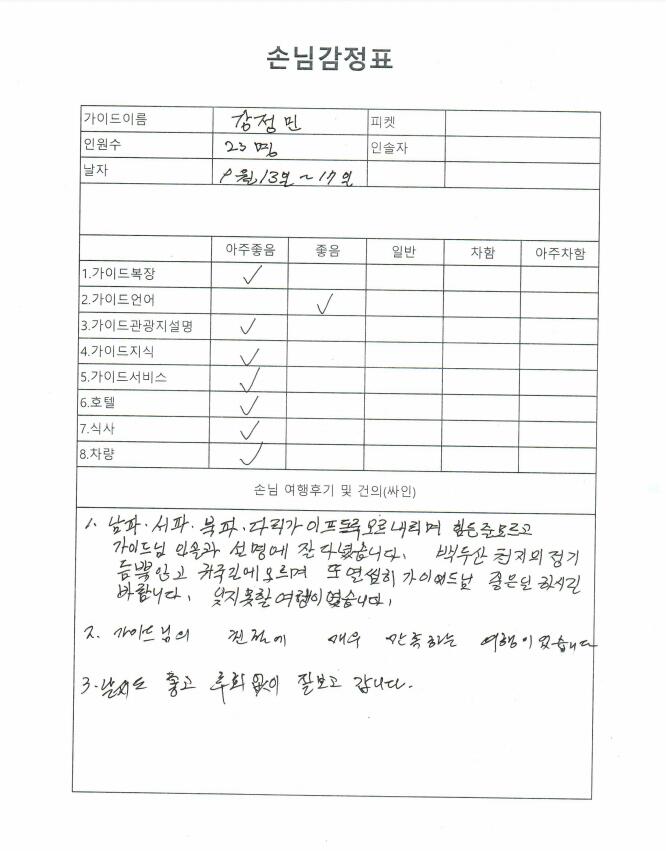 손님감정표
가이드이름 강정민 피켓
인원수 23명 인솔자
날자 9월 13일 ~ 17일
아주좋음 좋음 일반 차함 아주차함
1.가이드복장 ✓
2.가이드언어 ✓
3.가이드관광지설명 ✓
4.가이드지식 ✓
5.가이드서비스 ✓
6.호텔 ✓
7.식사 ✓
8.차량 ✓
손님 여행후기 및 건의(싸인)
1. 남파·서파·북파·다리가 아프도록 오르내리며 힘든줄모르고
가이드님 인솔과 설명에 잘 다녔습니다. 백두산 천지의 정기
듬뿍안고 귀국길에오르며 또 열심히 가이드님 좋은일 하시길
바랍니다. 낮지못할 여행이였습니다.
2. 가이드님의 친절에 매우 만족하는 여행이있습니다
3. 날씨도 좋고 후회없이 잘보고 갑니다.